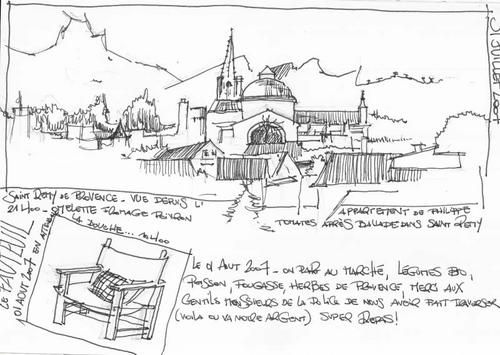 31 JUILLET 2007
SAINT REMY DE PROVENCE - VUE DEPUIS L'APPARTEMENT DE PHILIPPE
21H00 - OMELETTE FROMAGE POIVRON TOMATES APRÈS BALLADE DANS SAINT REMY
LE FAUTEUIL
01 AOUT 2007 EN ATTENDANT
LA DOUCHE... 20H00
LE 01 AOUT 2007 - ON PART AU MARCHÉ, LÉGUMES BIO,
POISSON, FOUGASSE, HERBES DE PROVENCE, MERCI AUX
GENTILS MESSIEURS DE LA POLICE DE NOUS AVOIR FAIT TRAVERSER
(VOILA OU VA NOTRE ARGENT) SUPER REPAS!